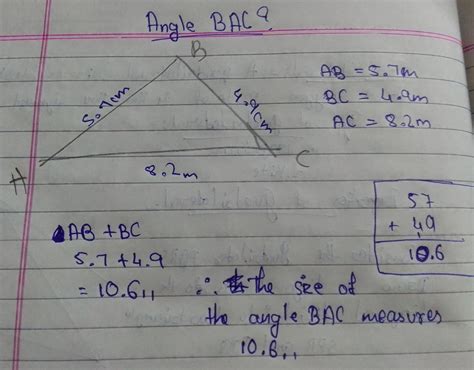 Angle BAC?
B
5.7cm
4.9cm
AB = 5.7m
BC = 4.9m
AC = 8.2m
A
C
8.2m
57
+ 49
10.6
AB + BC
5.7 + 4.9
= 10.6,, ∴ the size of
the angle BAC measures
10.6,,